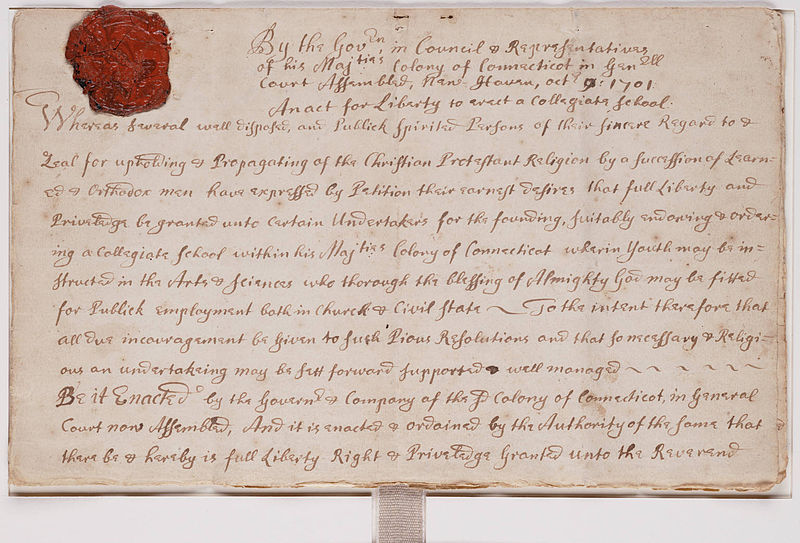 By the Govrn, in Council & Representatives
of his Majties Colony of Connecticot in Genrll
Court Assembled, New-Haven, octr 9: 1701
An act for Liberty to erect a Collegiate School:
Whereas several well disposed, and Publick spirited Persons of their sincere Regard to &
Zeal for upholding & Propagating of the Christian Protestant Religion by a succession of Learn-
ed & Orthodox men have expressed by Petition their earnest desires that full Liberty and
Priveledge be granted unto Certain Undertakers for the founding, suitably endowing & order-
ing a Collegiate School within his Majties Colony of Connecticot wherin Youth may be in-
structed in the Arts & Sciences who thorough the blessing of Almighty God may be fitted
for Publick employment both in Church & Civil State ~ To the intent therefore that
all due incouragement be Given to such Pious Resolutions and that so necessary & Religi-
ous an undertakeing may be sett forward supported & well managed ~ ~ ~ ~ ~ ~
Be it Enacted by the Governr & Company of the sd Colony of Connecticot, in General
Court now Assembled, And it is enacted & ordained by the Authority of the same that
there be & hereby is full Liberty Right & Priveledge Granted unto the Reverend